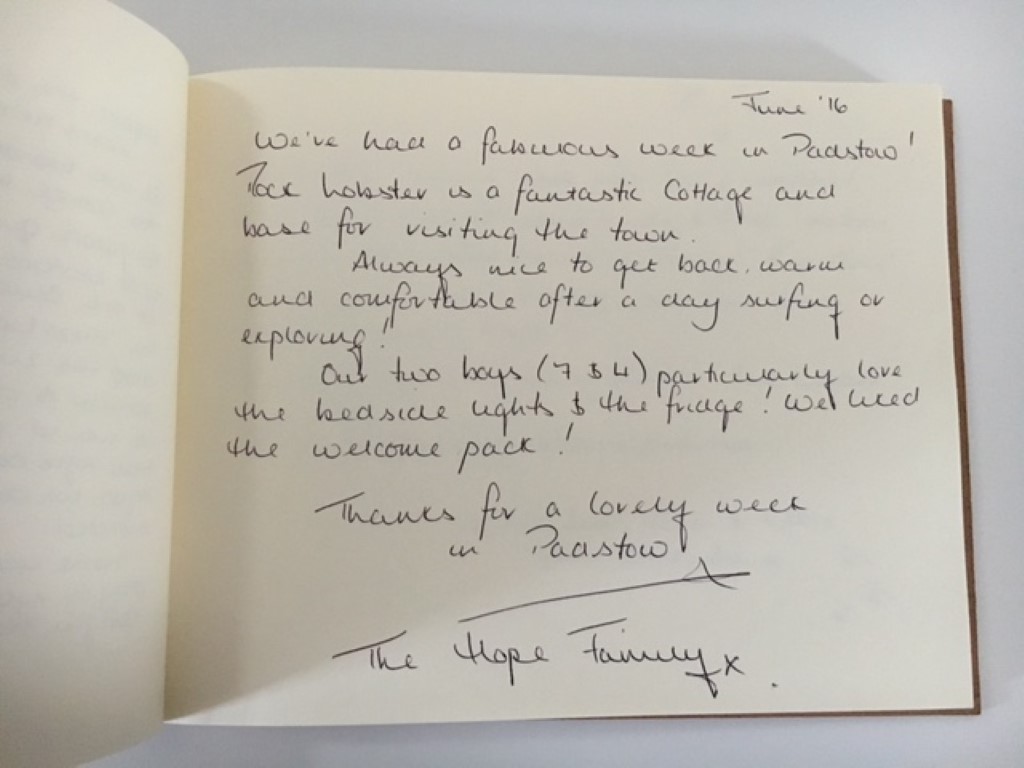 June '16
We've had a fabulous week in Padstow!
Rock Lobster is a fantastic Cottage and
base for visiting the town.
Always nice to get back, warm
and comfortable after a day surfing or
exploring!
Our two boys (7 & 4) particularly love
the bedside lights & the fridge! We liked
the welcome pack!
Thanks for a lovely week
in Padstow
The Hope Family x.